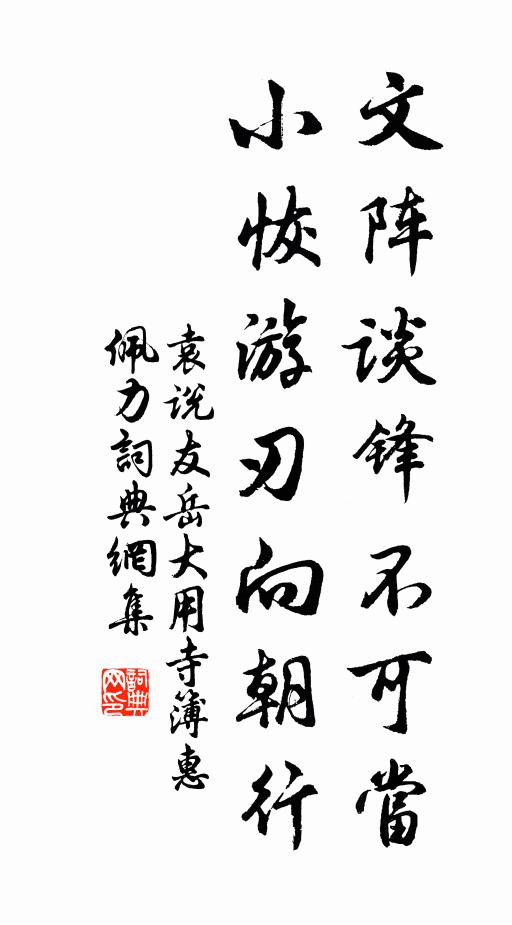 文阵谈锋不可當
小恢游刃向朝行
袁说友岳大用寺簿惠
佩力詞典網集
詞典网印